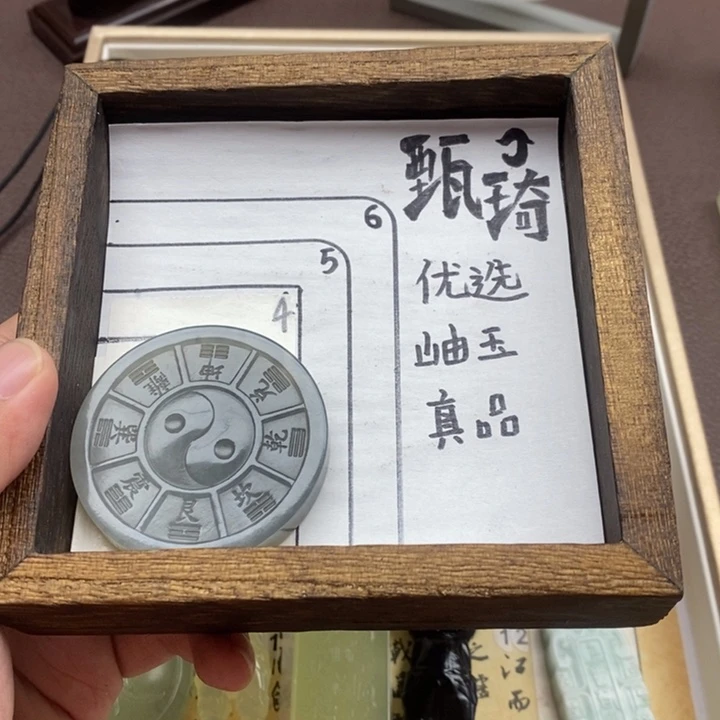 甄琦
优选
岫玉
真品
6
5
4
坤
兑
乾
坎
艮
震
巽
離
12
江
西
之